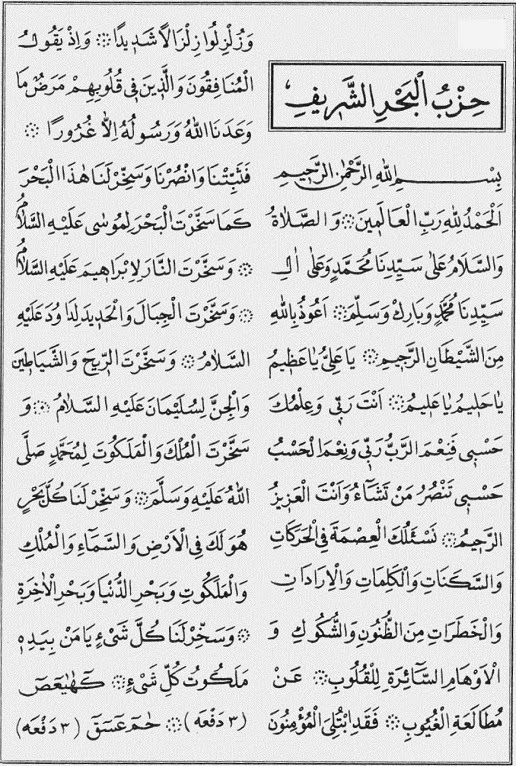 حِزْبُ الْبَحْرِ الشَّرِيفِ
بِسْمِ اللهِ الرَّحْمٰنِ الرَّحِيمِ
اَلْحَمْدُ لِلّٰهِ رَبِّ الْعَالَمِينَ ۞ وَالصَّلَاةُ
وَالسَّلَامُ عَلٰى سَيِّدِنَا مُحَمَّدٍ وَعَلٰى اٰلِ
سَيِّدِنَا مُحَمَّدٍ وَبَارِكْ وَسَلِّمْ ۞ اَعُوذُ بِاللهِ
مِنَ الشَّيْطَانِ الرَّجِيمِ ۞ يَا عَلِيُّ يَا عَظِيمُ
يَا حَلِيمُ يَا عَلِيمُ ۞ اَنْتَ رَبِّى وَعِلْمُكَ
حَسْبِى فَنِعْمَ الرَّبُّ رَبِّى وَنِعْمَ الْحَسْبُ
حَسْبِى تَنْصُرُ مَنْ تَشَاءُ وَاَنْتَ الْعَزِيزُ
الرَّحِيمُ ۞ نَسْئَلُكَ الْعِصْمَةَ فِى الْحَرَكَاتِ
وَالسَّكَنَاتِ وَالْكَلِمَاتِ وَالْاِرَادَاتِ
وَالْخَطَرَاتِ مِنَ الظُّنُونِ وَالشُّكُوكِ وَ
الْاَوْهَامِ السَّآئِرَةِ لِلْقُلُوبِ ۞ عَنْ
مُطَالَعَةِ الْغُيُوبِ ۞ فَقَدِ ابْتُلِىَ الْمُؤْمِنُونَ
وَزُلْزِلُوا زِلْزَالًا شَدِيدًا ۞ وَاِذْ يَقُولُ
الْمُنَافِقُونَ وَالَّذِينَ فِى قُلُوبِهِمْ مَرَضٌ مَا
وَعَدَنَا اللهُ وَرَسُولُهُ اِلَّا غُرُورًا ۞
فَثَبِّتْنَا وَانْصُرْنَا وَسَخِّرْ لَنَا هٰذَا الْبَحْرَ
كَمَا سَخَّرْتَ الْبَحْرَ لِمُوسٰى عَلَيْهِ السَّلَامُ
۞ وَسَخَّرْتَ النَّارَ لِاِبْرَاهِيمَ عَلَيْهِ السَّلَامُ
۞ وَسَخَّرْتَ الْجِبَالَ وَالْحَدِيدَ لِدَاوُدَ عَلَيْهِ
السَّلَامُ ۞ وَسَخَّرْتَ الرِّيحَ وَالشَّيَاطِينَ
وَالْجِنَّ لِسُلَيْمَانَ عَلَيْهِ السَّلَامُ ۞ وَ
سَخَّرْتَ الْمُلْكَ وَالْمَلَكُوتَ لِمُحَمَّدٍ صَلَّى
اللهُ عَلَيْهِ وَسَلَّمَ ۞ وَسَخِّرْ لَنَا كُلَّ بَحْرٍ
هُوَ لَكَ فِى الْاَرْضِ وَالسَّمَآءِ وَالْمُلْكِ
وَالْمَلَكُوتِ وَبَحْرِ الدُّنْيَا وَبَحْرِ الْاٰخِرَةِ
۞ وَسَخِّرْ لَنَا كُلَّ شَىْءٍ يَا مَنْ بِيَدِهِ
مَلَكُوتُ كُلِّ شَىْءٍ ۞ كٓهٰيٰعٓصٓ
(٣ دَفْعَه) ۞ حٰمٓ عٓسٓقٓ (٣ دَفْعَه)